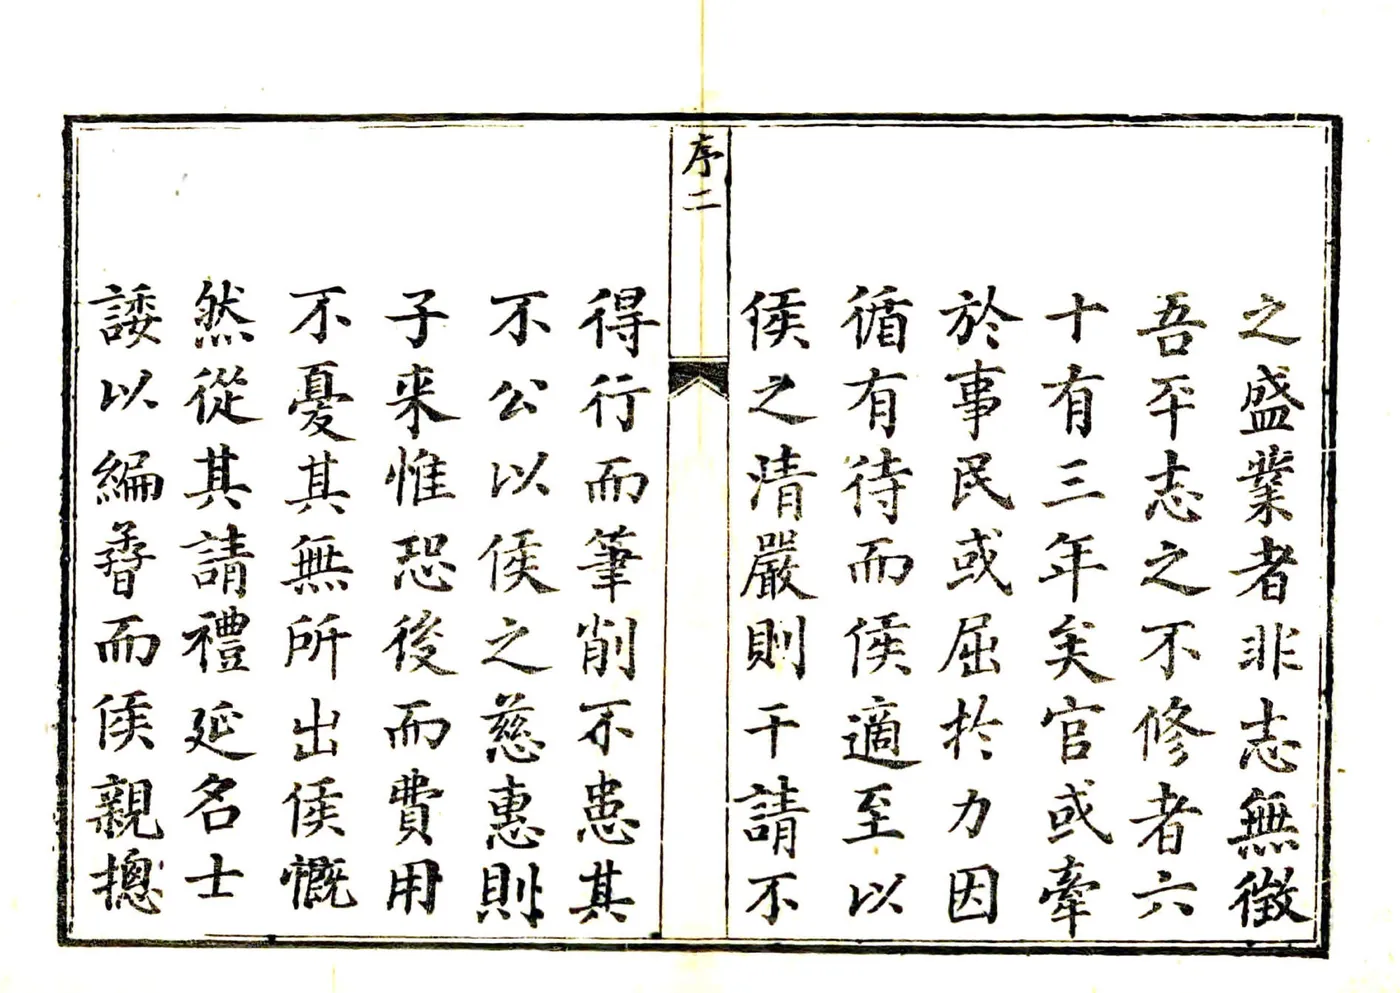 之盛業者非志無徵
吾平志之不修者六
十有三年矣官或牽
於事民或屈扵力因
循有待而侯適至以
侯之清嚴則干請不
序二
得行而筆削不患其
不公以侯之慈惠則
子来惟恐後而費用
不憂其無所出侯慨
然從其請禮延名士
諉以編摩而侯親摠